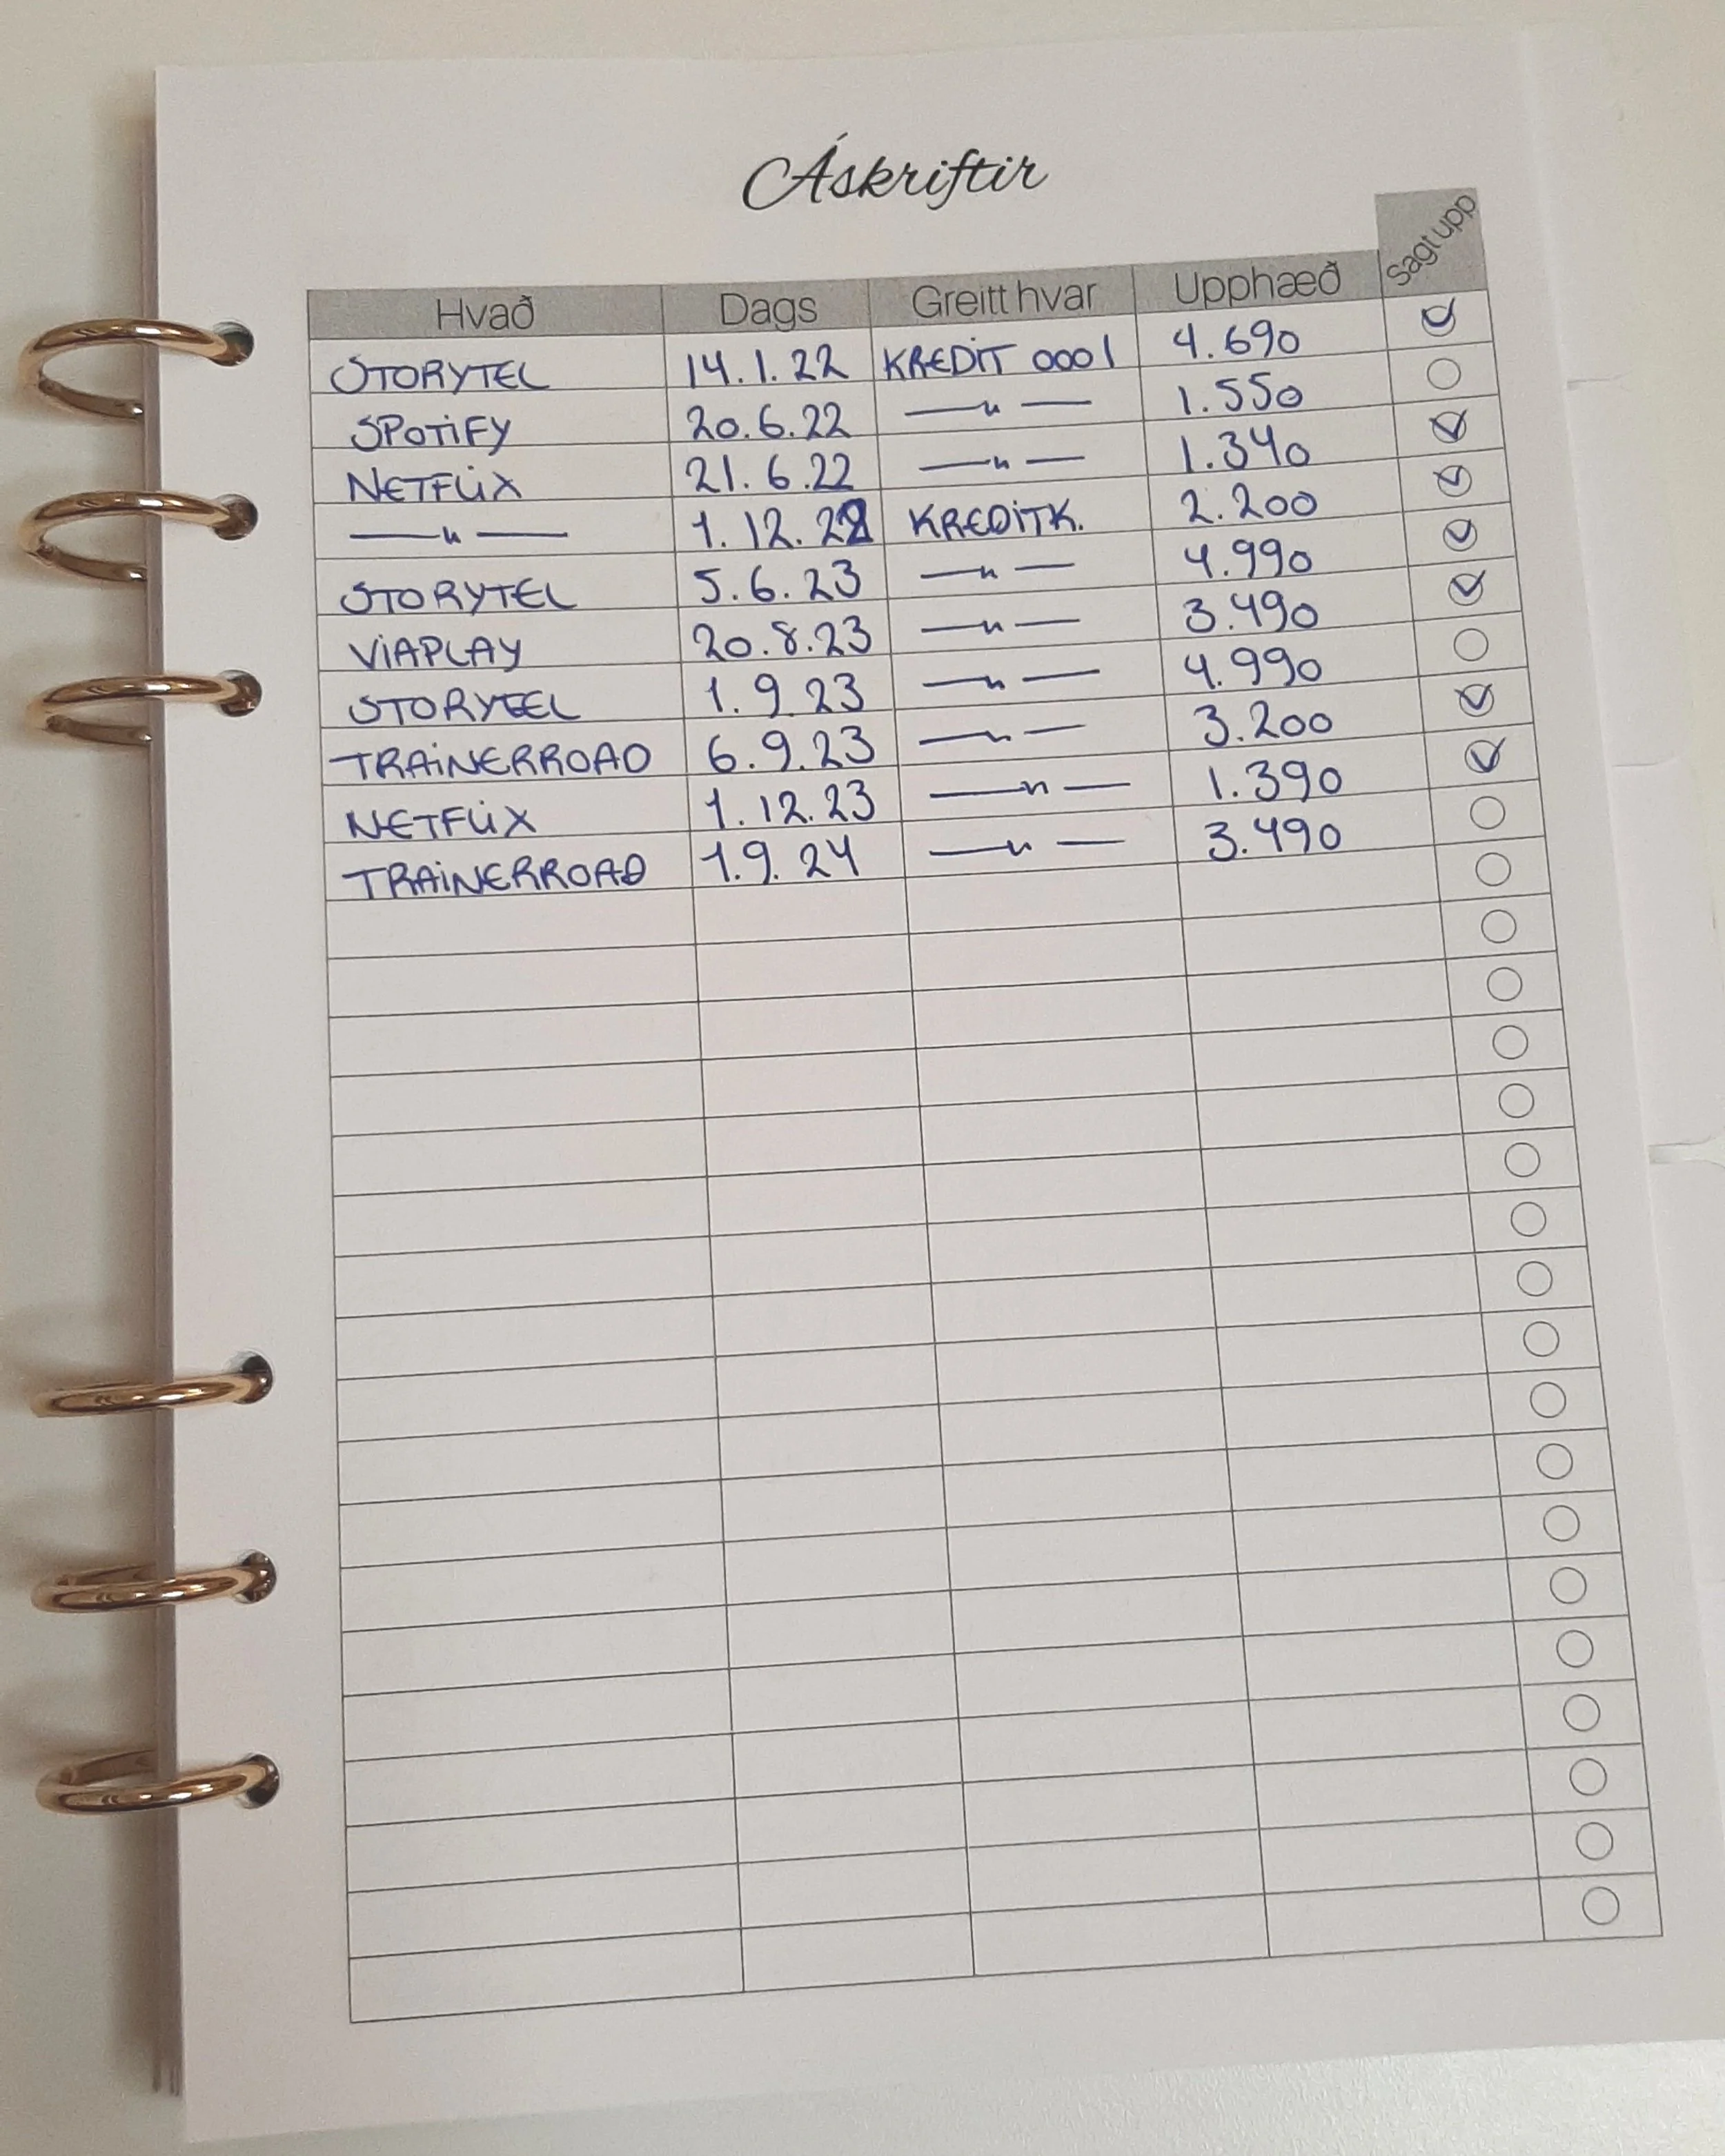 Áskriftir
Hvað Dags Greitt hvar Upphæð Sagt upp
STORYTEL 14.1.22 KREDIT 0001 4.690
SPOTIFY 20.6.22 —〃— 1.550
NETFLIX 21.6.22 —〃— 1.340
—〃— 1.12.22 KREDITK. 2.200
STORYTEL 5.6.23 —〃— 4.990
VIAPLAY 20.8.23 —〃— 3.490
STORYTEL 1.9.23 —〃— 4.990
TRAINERROAD 6.9.23 —〃— 3.200
NETFLIX 1.12.23 —〃— 1.390
TRAINERROAD 1.9.24 —〃— 3.490